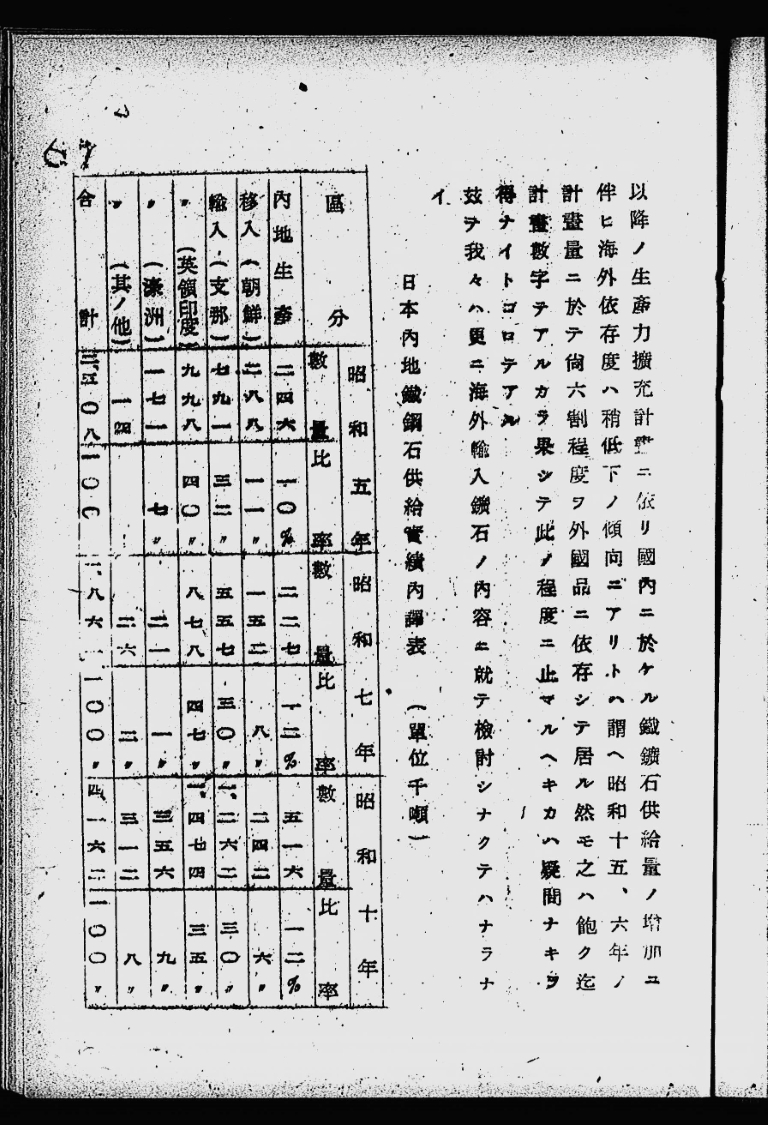 以降ノ生產力擴充計畫ニ依リ國內ニ於ケル鐵鑛石供給量ノ增加ニ
伴ヒ海外依存度ハ稍低下ノ傾向ニアリトハ謂ヘ昭和十五、六年ノ
計畫量ニ於テ尙六割程度ヲ外國品ニ依存シテ居ル然モ之ハ飽ク迄
計畫數字テアルカラ果シテ此ノ程度ニ止マルヘキカハ疑問ナキヲ
得ナイトコロテアル
玆ヲ我々ハ更ニ海外輸入鑛石ノ內容ニ就テ檢討シナクテハナラナ
イ
日本內地鐵鑛石供給實績內譯表 (單位千噸)
區分 昭和五年 昭和七年 昭和十年
數量 比率 數量 比率 數量 比率
內地生產 二四六 一〇% 二二七 一二% 五一六 一二%
移入(朝鮮) 二八八 一一〃 一五二 八〃 二四二 六〃
輸入(支那) 七九一 三二〃 五五七 三〇〃 一、二六二 三〇〃
〃(英領印度) 九九八 四〇〃 八七八 四七〃 一、四七四 三五〃
〃(濠洲) 一七一 七〃 二一 一〃 三五六 九〃
〃(其ノ他) 一四 二六 二〃 三一二 八〃
合計 二、五〇八 一〇〇 一、八六一 一〇〇〃 四、一六二 一〇〇〃